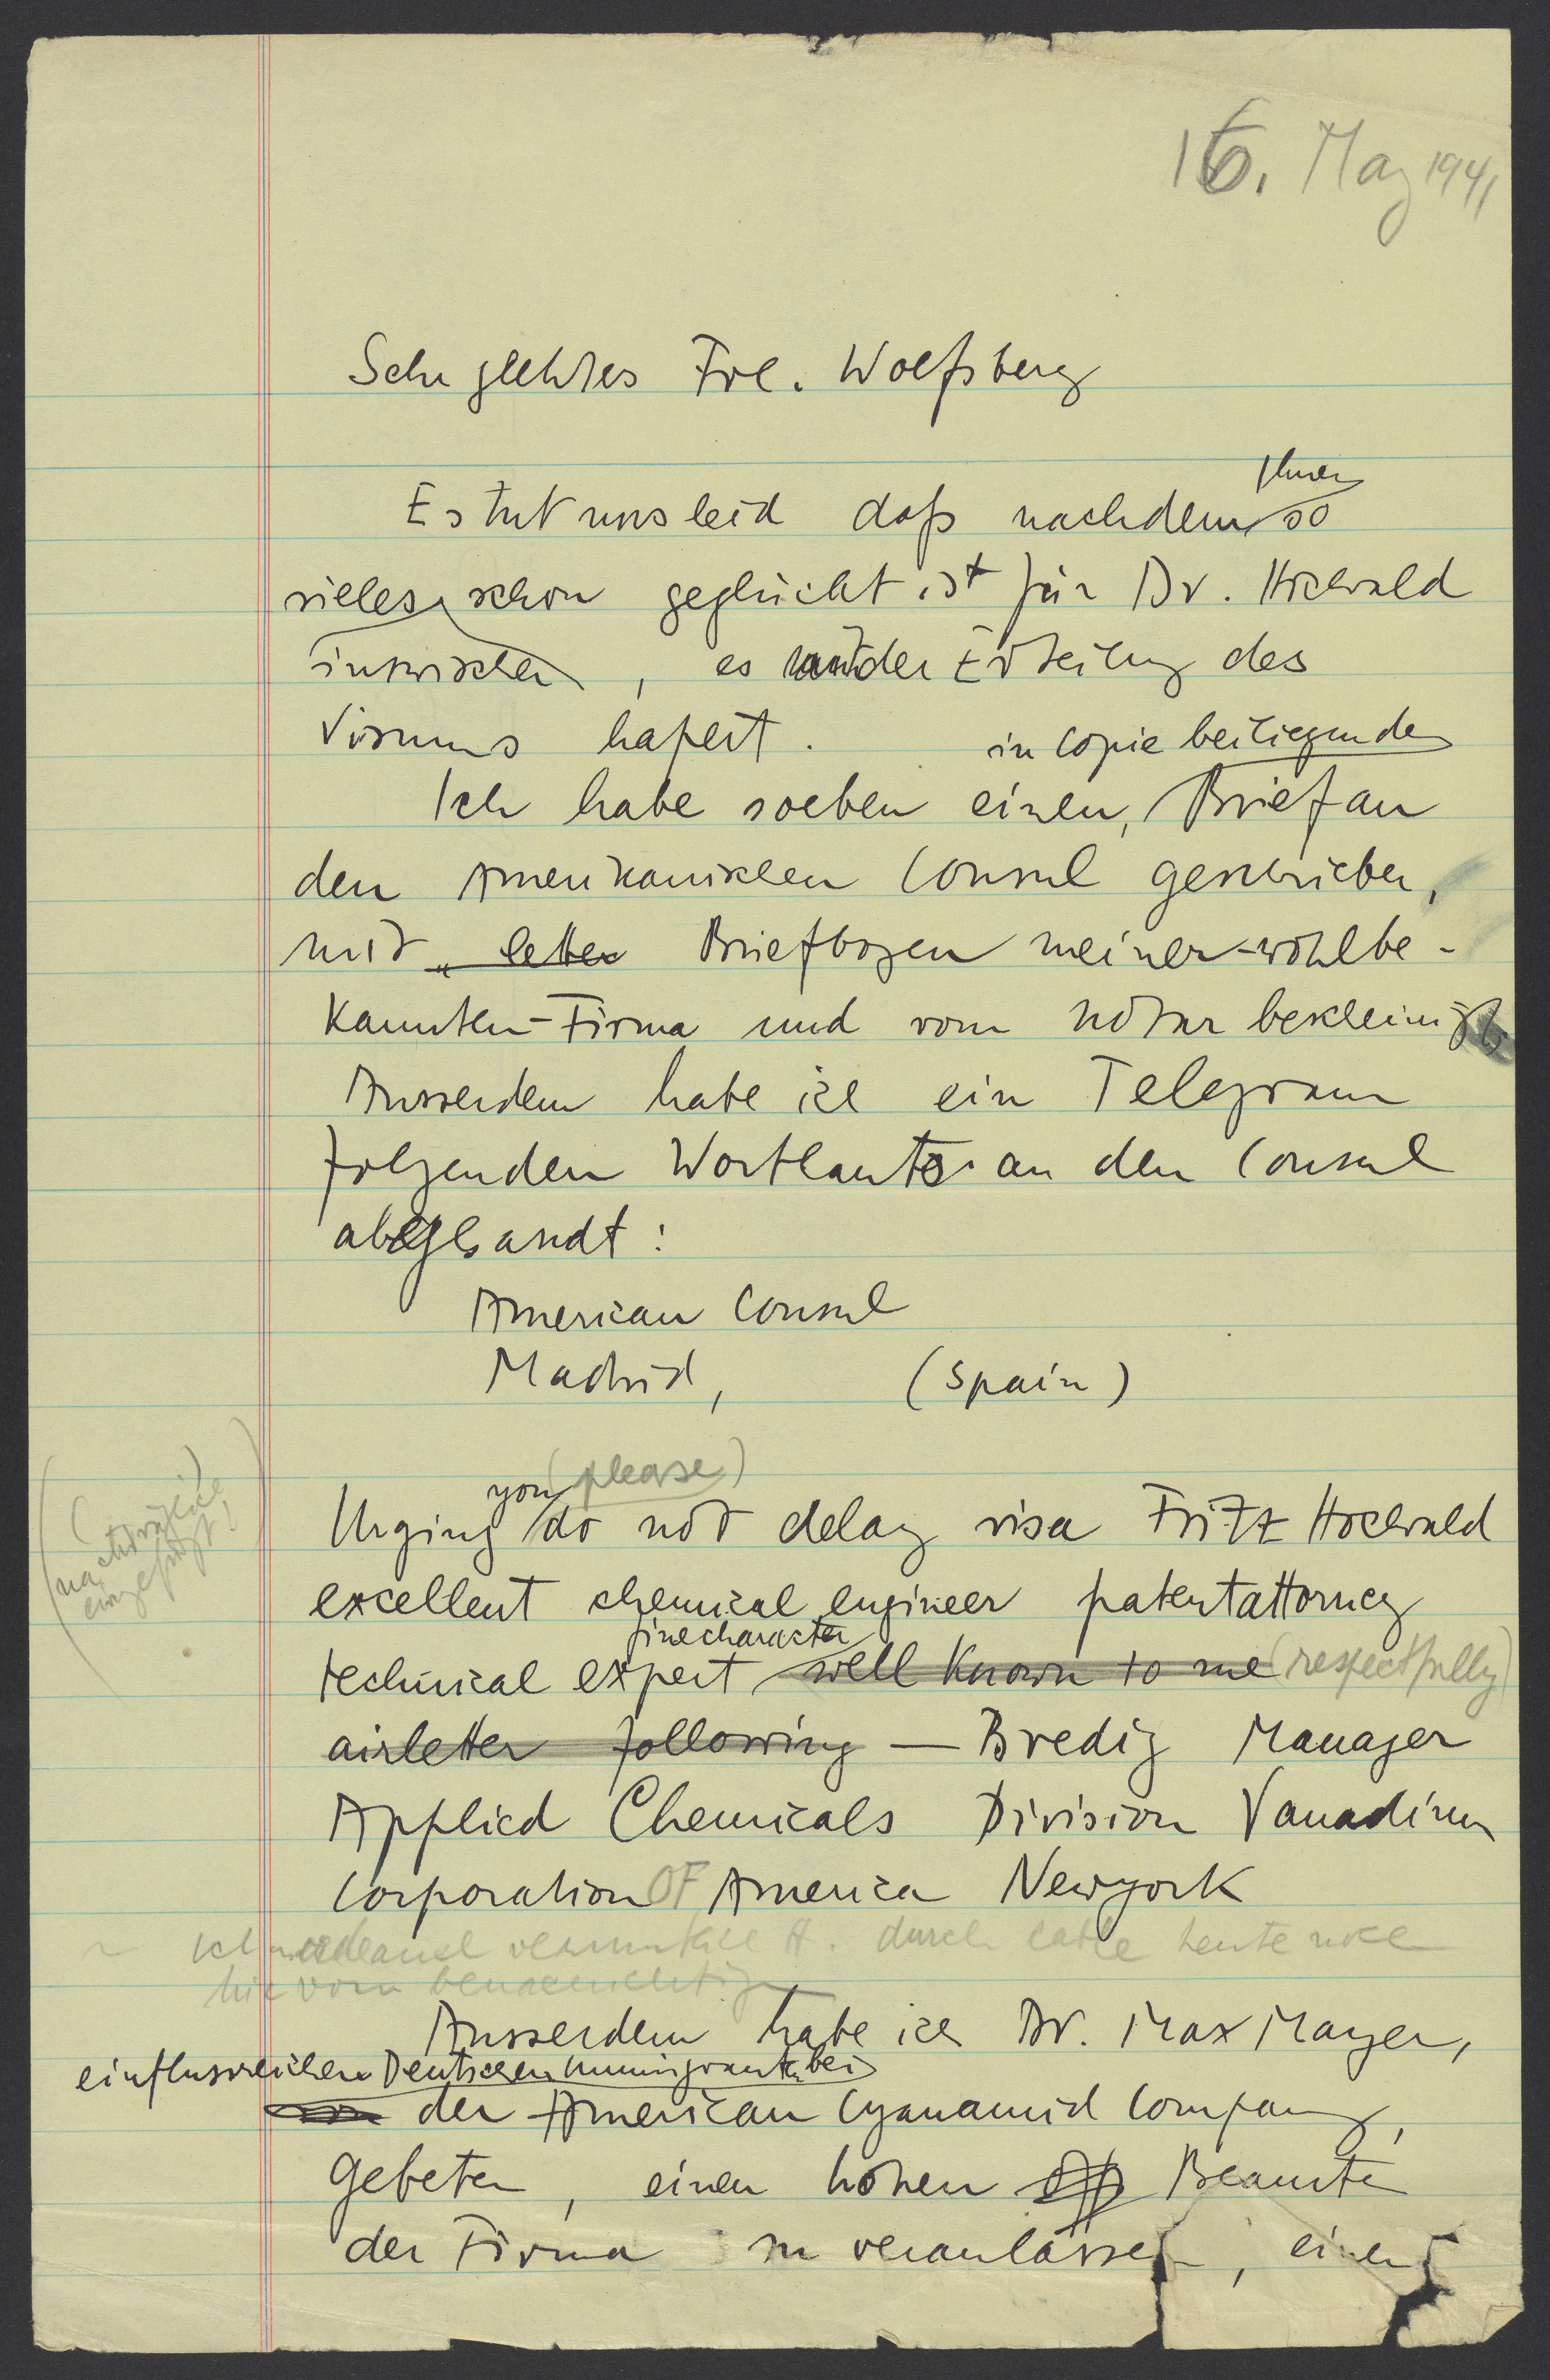 16. May 1941
Sehr geehrtes Frl. Wolfsberg
Ihnen
Es tut uns leid daſs nachdem so
vieles schon geglückt ist für Dr. Hochwald
inzwischen, es mit der Erteilung des
Visums hapert.
in Copie beiliegenden
Ich habe soeben einen, Brief an
den Amerikanischen Consul geschrieben,
mit „ letter Briefbogen meiner-wohlbe-
kannten-Firma und vom Notar bescheinigt,
Ausserdem habe ich ein Telegram
folgenden Wortlauts an den Consul
abgesandt:
American Consul
Madrid, (Spain)
you (please)
Urging do not delay visa Fritz Hochwald
(nachträglich
eingefügt!)
excellent chemical engineer patentattorney
fine character
technical expert well known to me (respectfully)
airletter following — Bredig Manager
Applied Chemicals Division Vanadium
Corporation OF America Newyork
H. durch cable heute noch
hiervon benachrichtigen
Ausserdem habe ich Dr. Max Mayer,
einflussreichen Deutschen Immigranten bei
der American Cyanamid Company,
gebeten, einen hohen Beamten
der Firma zu veranlassen, einen